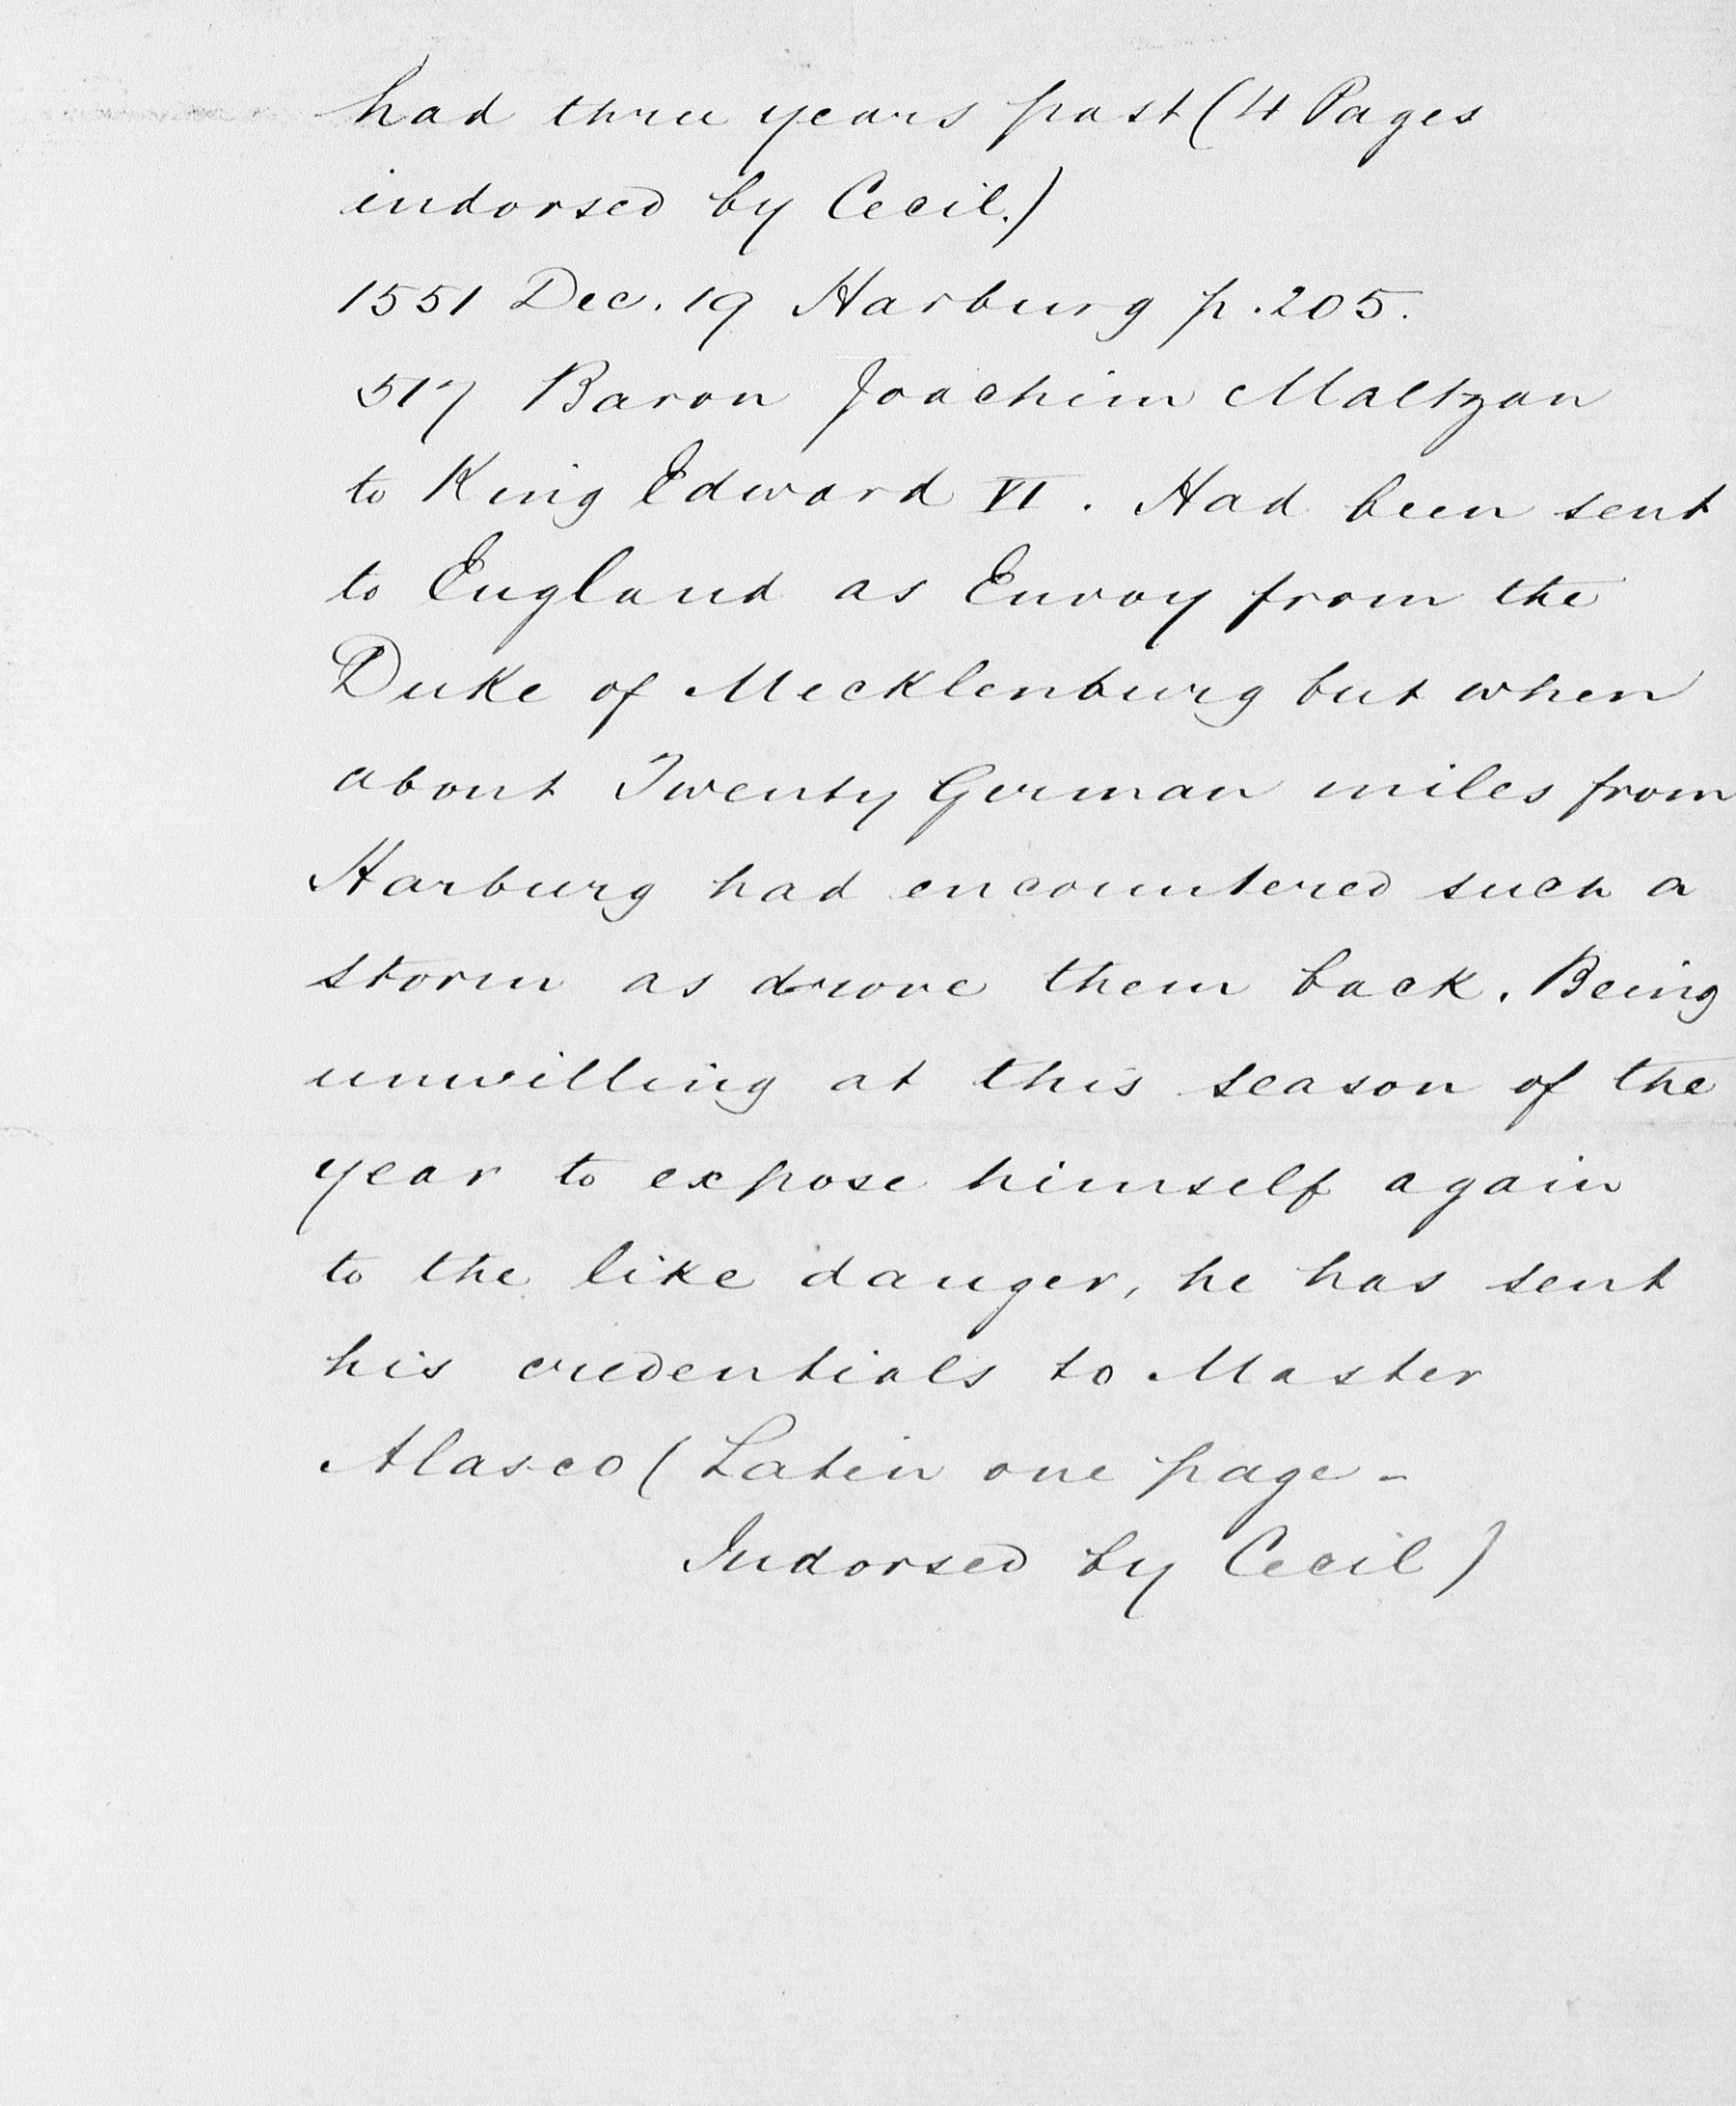 had three years past (4 Pages
indorsed by Cecil.)
1551 Dec. 19 Harburg p. 205.
517 Baron Joachim Maltzan
to King Edward VI. Had been sent
to England as Envoy from the
Duke of Mecklenburg but when
about Twenty German miles from
Harburg had encountered such a
storm as drove them back. Being
unwilling at this season of the
year to expose himself again
to the like danger, he has sent
his credentials to Master
Alasco (Latin one page -
Indorsed by Cecil)